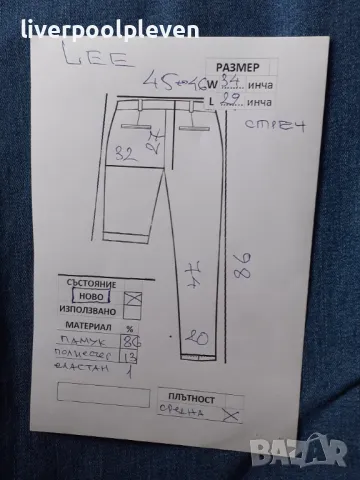 liverpoolpleven
LEE
РАЗМЕР
45-46 W 34 инча
L 29 инча
СТРЕЧ
27
32
98
74
20
СЪСТОЯНИЕ
НОВО X
ИЗПОЛЗВАНО
МАТЕРИАЛ %
ПАМУК 86
ПОЛИЕСТЕР 13
ЕЛАСТАН 1
ПЛЪТНОСТ
СРЕДНА X
BAZAR